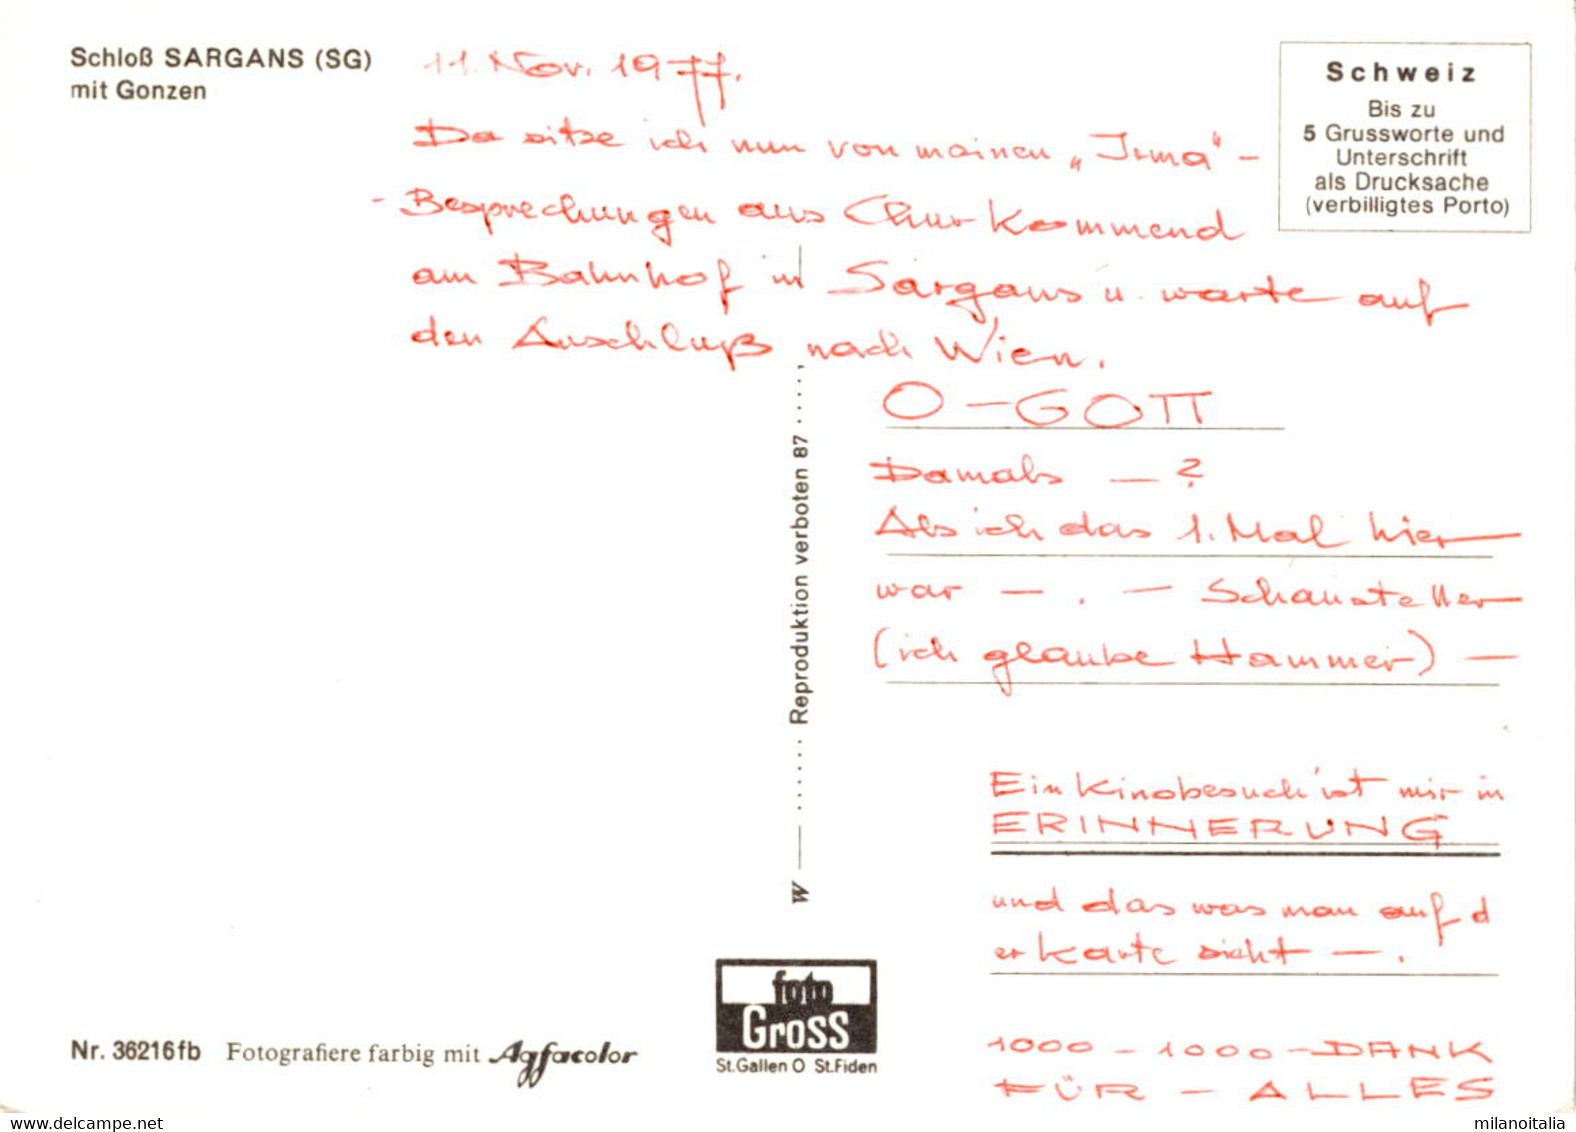 Schloß SARGANS (SG)
mit Gonzen
11. Nov. 1977.
Da sitze ich nun von meinen „Irma" -
- Besprechungen aus Chur kommend
am Bahnhof in Sargans u. warte auf
den Anschluß nach Wien.
O - GOTT
Damals — ?
Als ich das 1. Mal hier
war — . — Schausteller
(ich glaube Hammer) —
Ein Kinobesuch ist mir in
ERINNERUNG
und das was man auf d
er Karte sieht — .
1000 - 1000 - DANK
FÜR - ALLES
Schweiz
Bis zu
5 Grussworte und
Unterschrift
als Drucksache
(verbilligtes Porto)
W —— ...... Reproduktion verboten 87 ......
foto
Gross
St.Gallen O St.Fiden
Nr. 36216fb Fotografiere farbig mit Agfacolor
milanoitalia